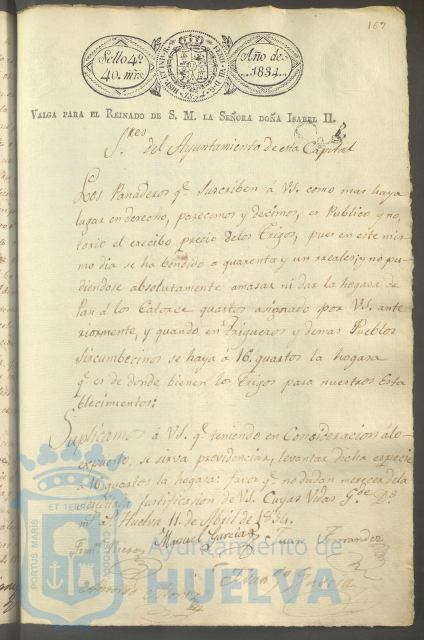 167
Sello 4º
40. mrs.
Año de
1834.
VALGA PARA EL REINADO DE S. M. LA SEÑORA DOÑA ISABEL II.
S.res del Ayuntamiento de esta Capital
Los Panaderos q.e suscriben á V.S. como mas haya
lugar en derecho, parecimos y decimos, es Publico y no,
torio el excecibo precio de los Trigos, pues en este mis
mo dia se ha bendido a quarenta y un rreales; y no pu-
diendose absolutamente amasar ni dar la hogasa de
Pan á los Catorce quartos asignado por V.S. ante
riormente, y quando en Trigueros y demas Pueblos
sircumbecinos se haya á 16. quartos la hogasa
q.e es de donde bienen los Trigos para nuestros Esta
blecimientos:
Suplicamos á V.S. q.e teniendo en Consideracion álo
expuesto, se sirva providenciar, levantar dicha especie
á 16 quartos la hogasa: favor q.e no dudan merecer de la
justificasion de V.S. Cuyas Vidas G.de D.s
m.s a.s Huelva 11. de Abril de 1834.
Manuel Garcia
Juan Fernandez
Garcia
PORTUS MARIS
ET TERRAE
CUSTODIA
Ayuntamiento de
HUELVA